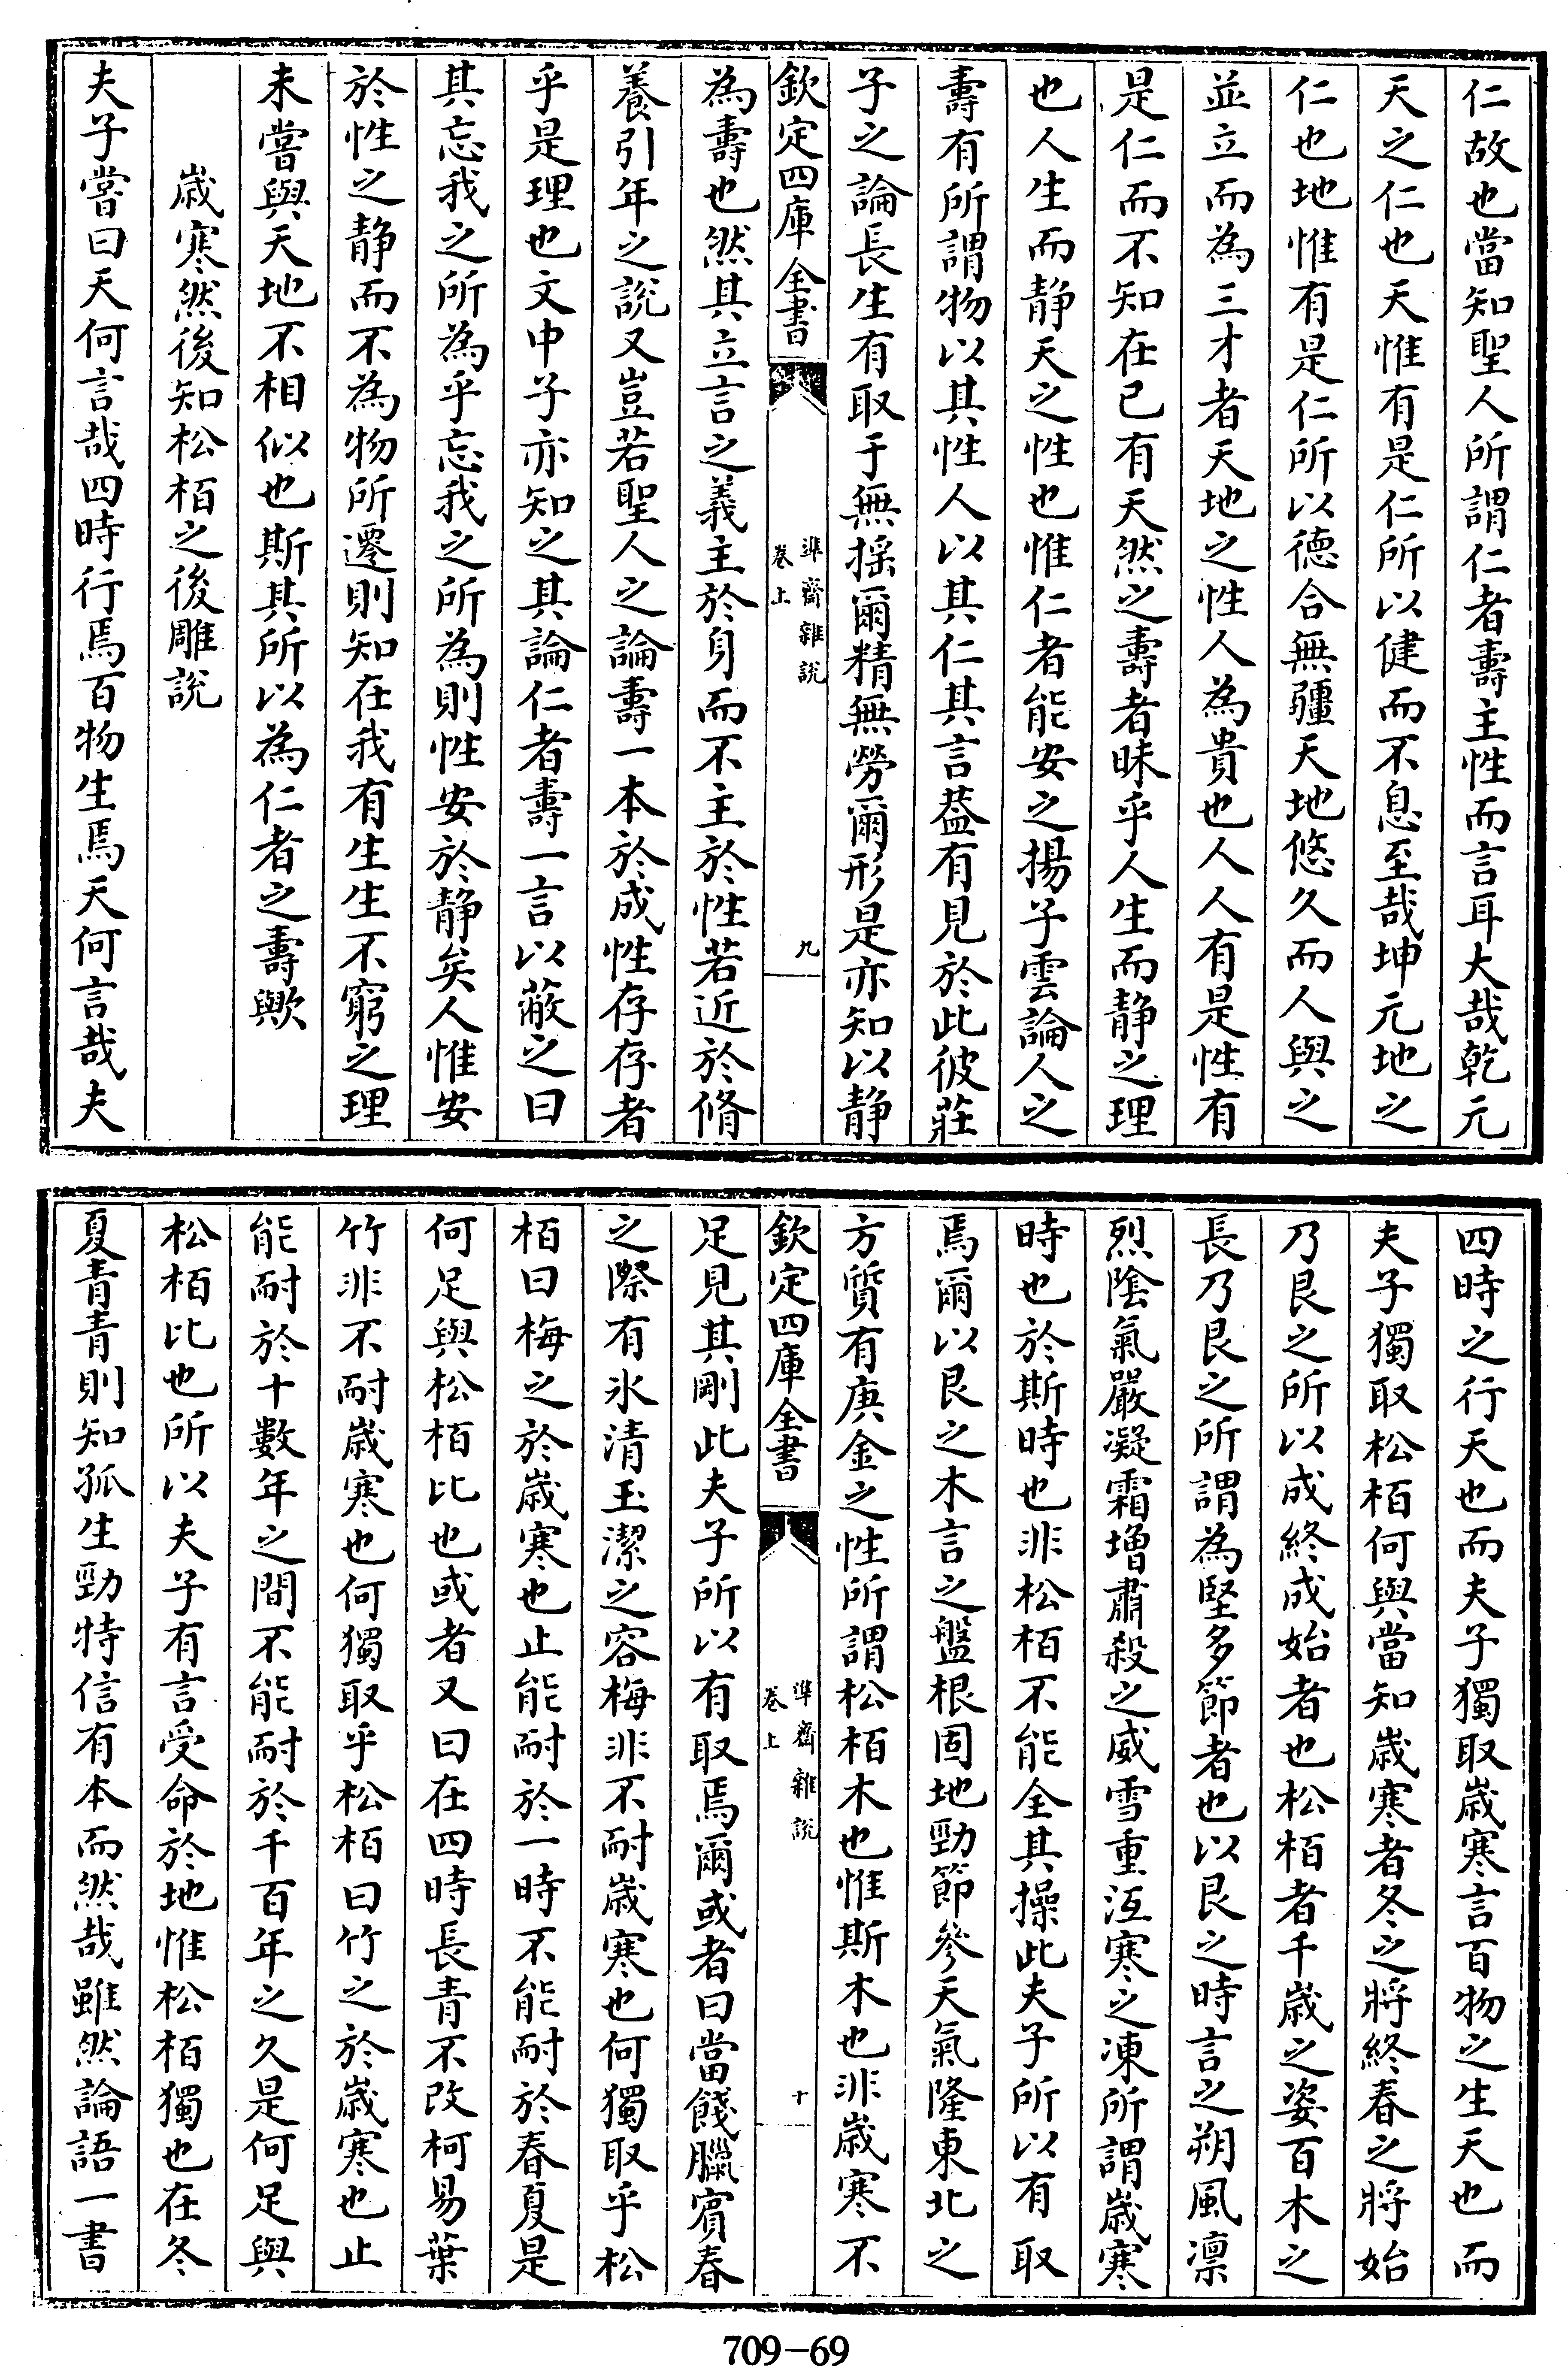 仁故也當知聖人所謂仁者壽主性而言耳大哉乾元
天之仁也天惟有是仁所以健而不息至哉坤元地之
仁也地惟有是仁所以德合無疆天地悠久而人與之
並立而為三才者天地之性人為貴也人人有是性有
是仁而不知在已有天然之壽者昧乎人生而静之理
也人生而静天之性也惟仁者能安之揚子雲論人之
壽有所謂物以其性人以其仁其言葢有見於此彼莊
子之論長生有取于無揺爾精無勞爾形是亦知以静
欽定四庫全書
準齋雜說
卷上
九
為壽也然其立言之義主於身而不主於性若近於脩
養引年之說又豈若聖人之論壽一本於成性存存者
乎是理也文中子亦知之其論仁者壽一言以蔽之曰
其忘我之所為乎忘我之所為則性安於静矣人惟安
於性之静而不為物所遷則知在我有生生不窮之理
未嘗與天地不相似也斯其所以為仁者之壽歟
歲寒然後知松栢之後雕說
夫子嘗曰天何言哉四時行焉百物生焉天何言哉夫
四時之行天也而夫子獨取歲寒言百物之生天也而
夫子獨取松栢何與當知歲寒者冬之將終春之將始
乃艮之所以成終成始者也松栢者千歲之姿百木之
長乃艮之所謂為堅多節者也以艮之時言之朔風凛
烈隂氣嚴凝霜增肅殺之威雪重沍寒之凍所謂歲寒
時也於斯時也非松栢不能全其操此夫子所以有取
焉爾以艮之木言之盤根固地勁節參天氣隆東北之
方質有庚金之性所謂松栢木也惟斯木也非歲寒不
欽定四庫全書
準齋雜說
卷上
十
足見其剛此夫子所以有取焉爾或者曰當餞臘賓春
之際有氷清玉潔之容梅非不耐歲寒也何獨取乎松
栢曰梅之於歲寒也止能耐於一時不能耐於春夏是
何足與松栢比也或者又曰在四時長青不改柯易葉
竹非不耐歲寒也何獨取乎松栢曰竹之於歲寒也止
能耐於十數年之間不能耐於千百年之久是何足與
松栢比也所以夫子有言受命於地惟松栢獨也在冬
夏青青則知孤生勁特信有本而然哉雖然論語一書
709-69